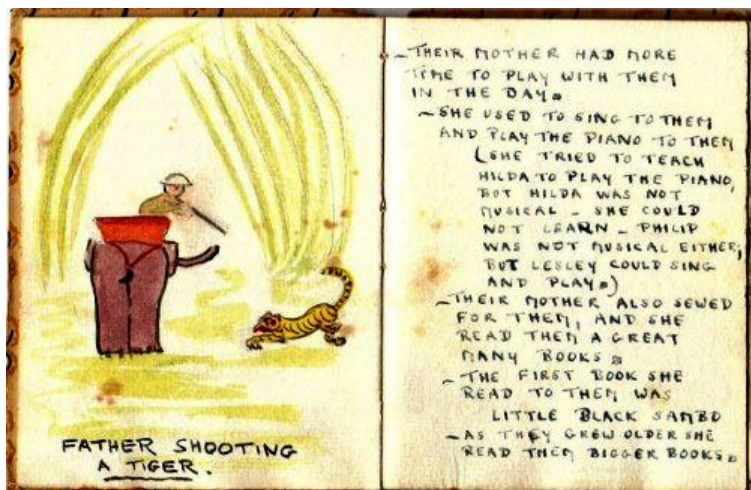 FATHER SHOOTING
A TIGER.
~THEIR MOTHER HAD MORE
TIME TO PLAY WITH THEM
IN THE DAY.
~SHE USED TO SING TO THEM
AND PLAY THE PIANO TO THEM
(SHE TRIED TO TEACH
HILDA TO PLAY THE PIANO,
BUT HILDA WAS NOT
MUSICAL – SHE COULD
NOT LEARN – PHILIP
WAS NOT MUSICAL EITHER,
BUT LESLEY COULD SING
AND PLAY.)
~THEIR MOTHER ALSO SEWED
FOR THEM, AND SHE
READ THEM A GREAT
MANY BOOKS.
~THE FIRST BOOK SHE
READ TO THEM WAS
LITTLE BLACK SAMBO
~AS THEY GREW OLDER SHE
READ THEM BIGGER BOOKS.